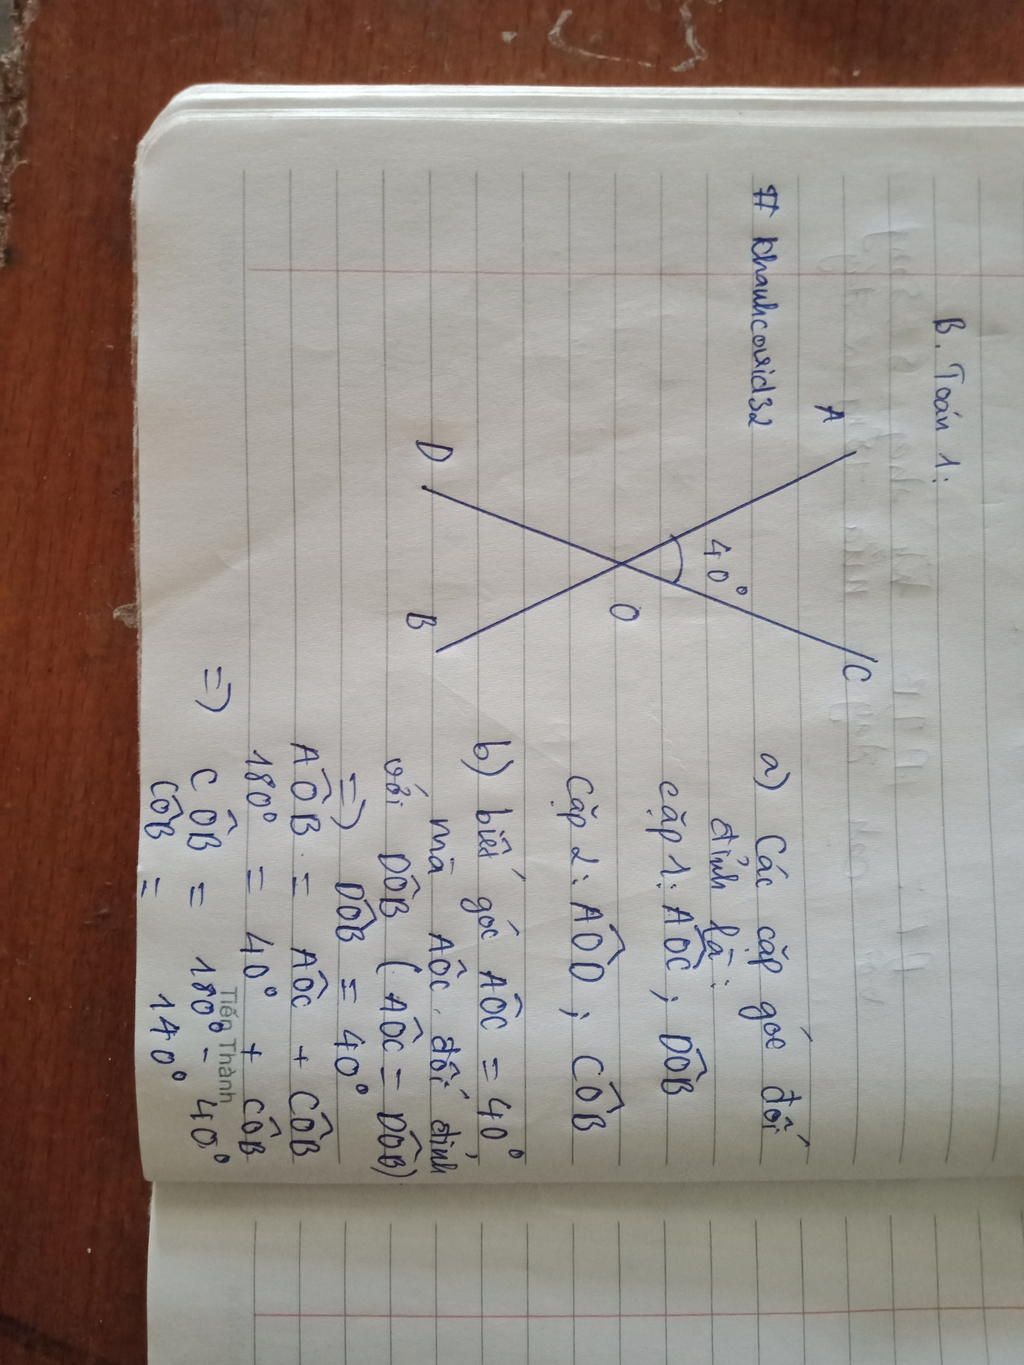 B. Toán 1:
# khanhcovid32
A
C
40°
O
D
B
a) Các cặp góc đối
đỉnh là:
cặp 1: AÔC ; DÔB
Cặp 2: AÔD ; CÔB
b) biết góc AÔC = 40°
mà AÔC đối đỉnh
với DÔB (AÔC = DÔB)
=) DÔB = 40°
AÔB = AÔC + CÔB
180° = 40° + CÔB
=) CÔB = 180° - 40°
CÔB = 140°
Tiến Thành